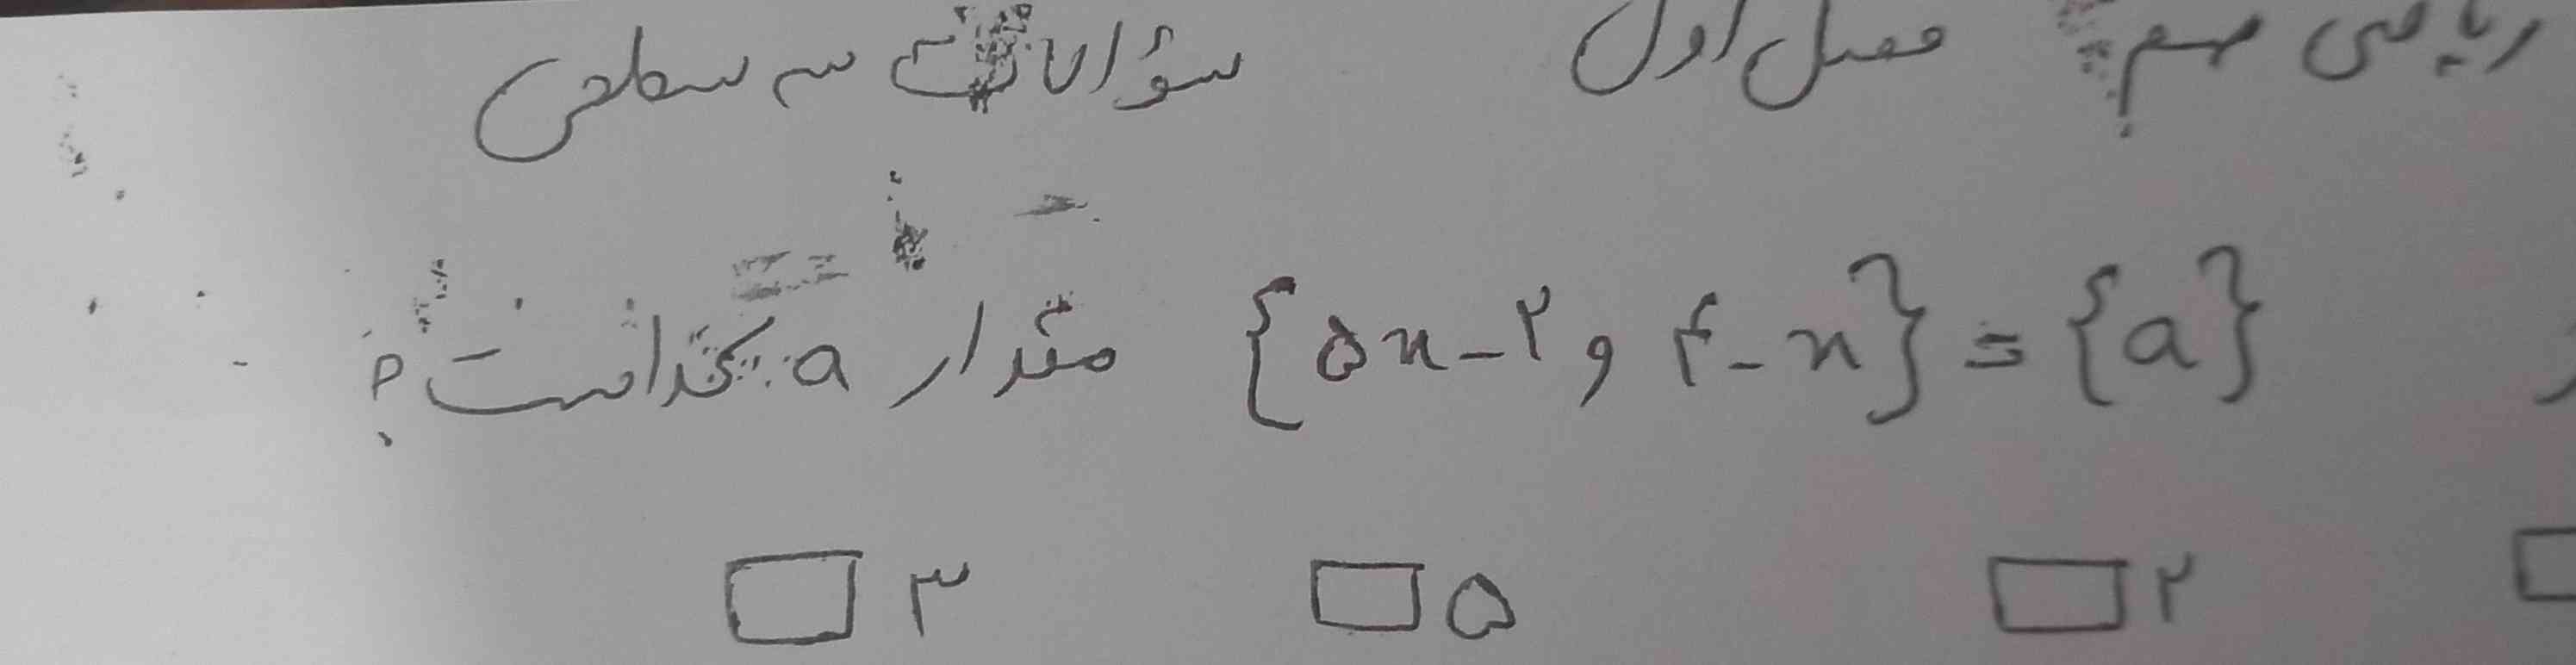 ریاضی نهم فصل اول سؤالات سه سطحی
{۵x-۲ و ۴-x} = {a} مقدار a کدام است؟
۲ ۵ ۳